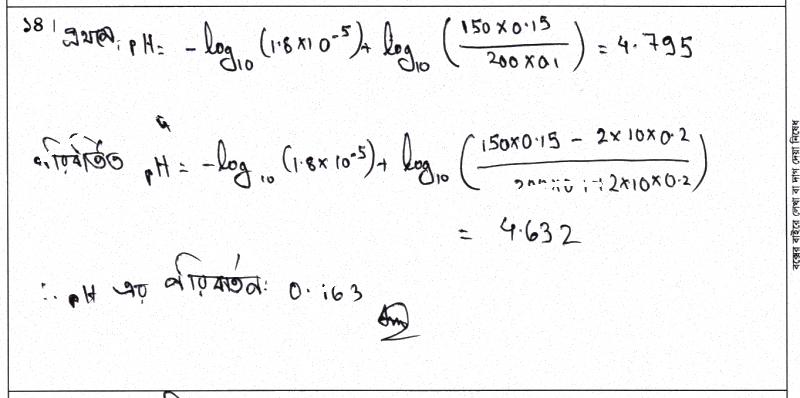 ১৪। প্রথমে, pH = -log₁₀ (1.8×10⁻⁵) + log₁₀ (150×0.15 / 200×0.1) = 4.795
পরিবর্তিত pH = -log₁₀ (1.8×10⁻⁵) + log₁₀ (150×0.15 - 2×10×0.2 / 2×10×0.2)
= 4.632
∴ pH এর পরিবর্তন: 0.163
Ans
বক্সের বাইরে লেখা বা দাগ দেয়া নিষেধ